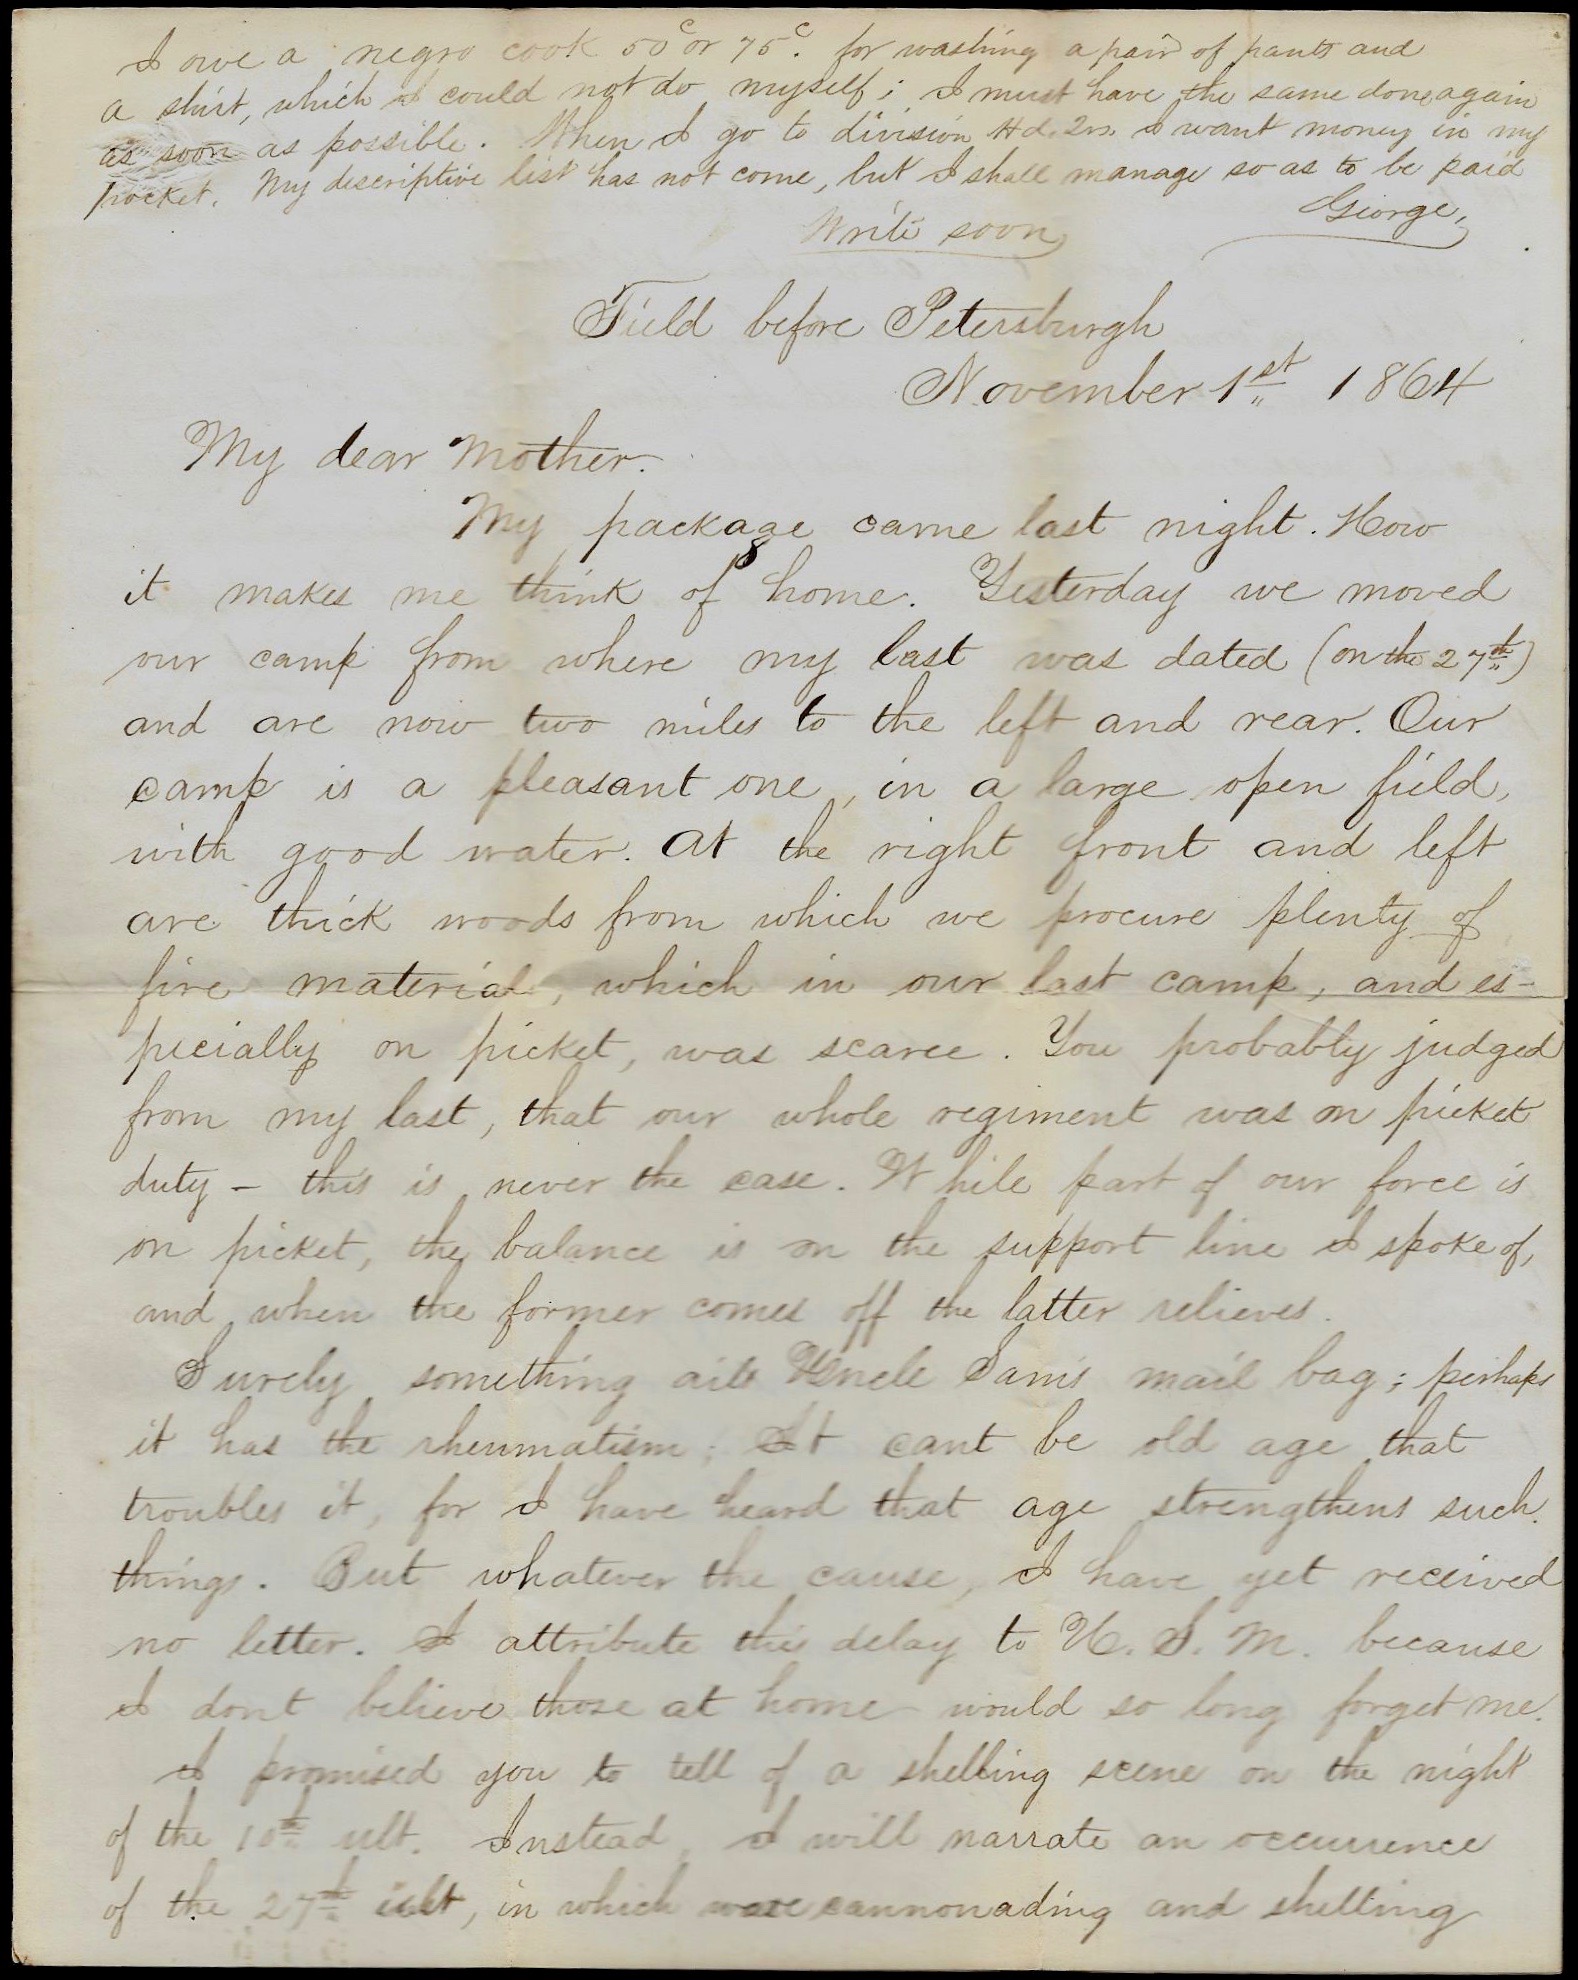 I owe a negro cook 50c or 75c. for washing a pair of pants and
a shirt, which I could not do myself; I must have the same done again
as soon as possible. When I go to division Hd. Qrs. I want money in my
pocket. My descriptive list has not come, but I shall manage so as to be paid
George.
Write soon
Field before Petersburgh
November 1st 1864
My dear Mother.
My package came last night. How
it makes me think of home. Yesterday we moved
our camp from where my last was dated (on the 27th)
and are now two miles to the left and rear. Our
camp is a pleasant one, in a large open field,
with good water. At the right front and left
are thick woods from which we procure plenty of
fire material, which in our last camp, and es-
pecially on picket, was scarce. You probably judged
from my last, that our whole regiment was on picket
duty - this is never the case. While part of our force is
on picket, the balance is on the support line I spoke of,
and when the former comes off the latter relieves.
Surely something ails Uncle Sam's mail bag; perhaps
it has the rheumatism; It cant be old age that
troubles it, for I have heard that age strengthens such
things. But whatever the cause, I have yet received
no letter. I attribute this delay to U.S.M. because
I dont believe those at home would so long forget me.
I promised you to tell of a shelling scene on the night
of the 10th ult. Instead I will narrate an occurrence
of the 27th ult, in which were cannonading and shelling